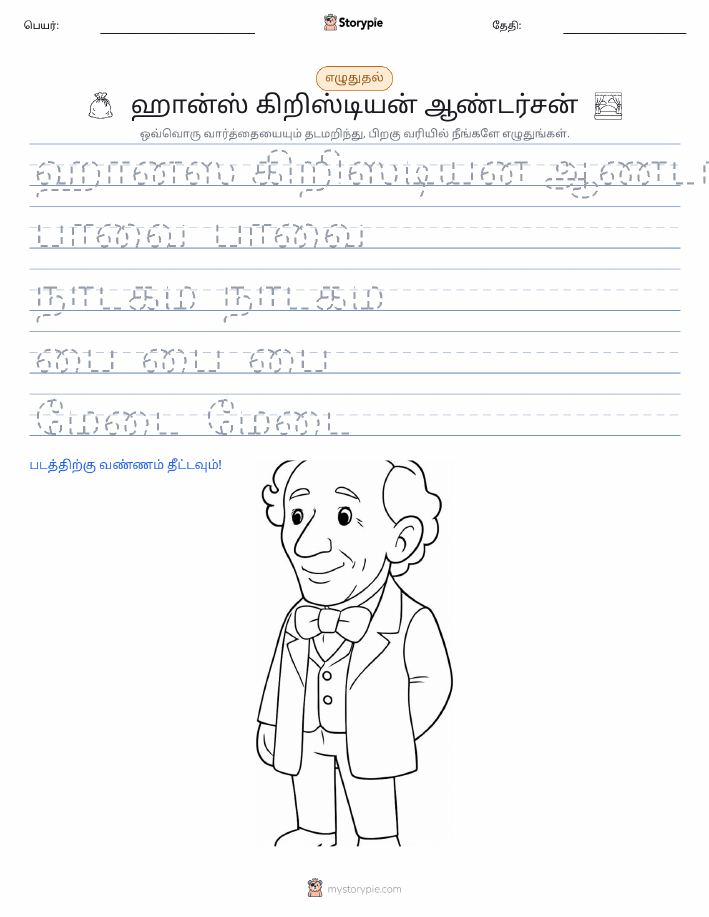 பெயர்:
Storypie
தேதி:
எழுதுதல்
ஹான்ஸ் கிறிஸ்டியன் ஆண்டர்சன்
ஒவ்வொரு வார்த்தையையும் தடமறிந்து, பிறகு வரியில் நீங்களே எழுதுங்கள்.
ஹான்ஸ் கிறிஸ்டியன்
பாவை பாவை
நாடகம் நாடகம்
பை பை பை
மேடை மேடை
படத்திற்கு வண்ணம் தீட்டவும்!
mystorypie.com